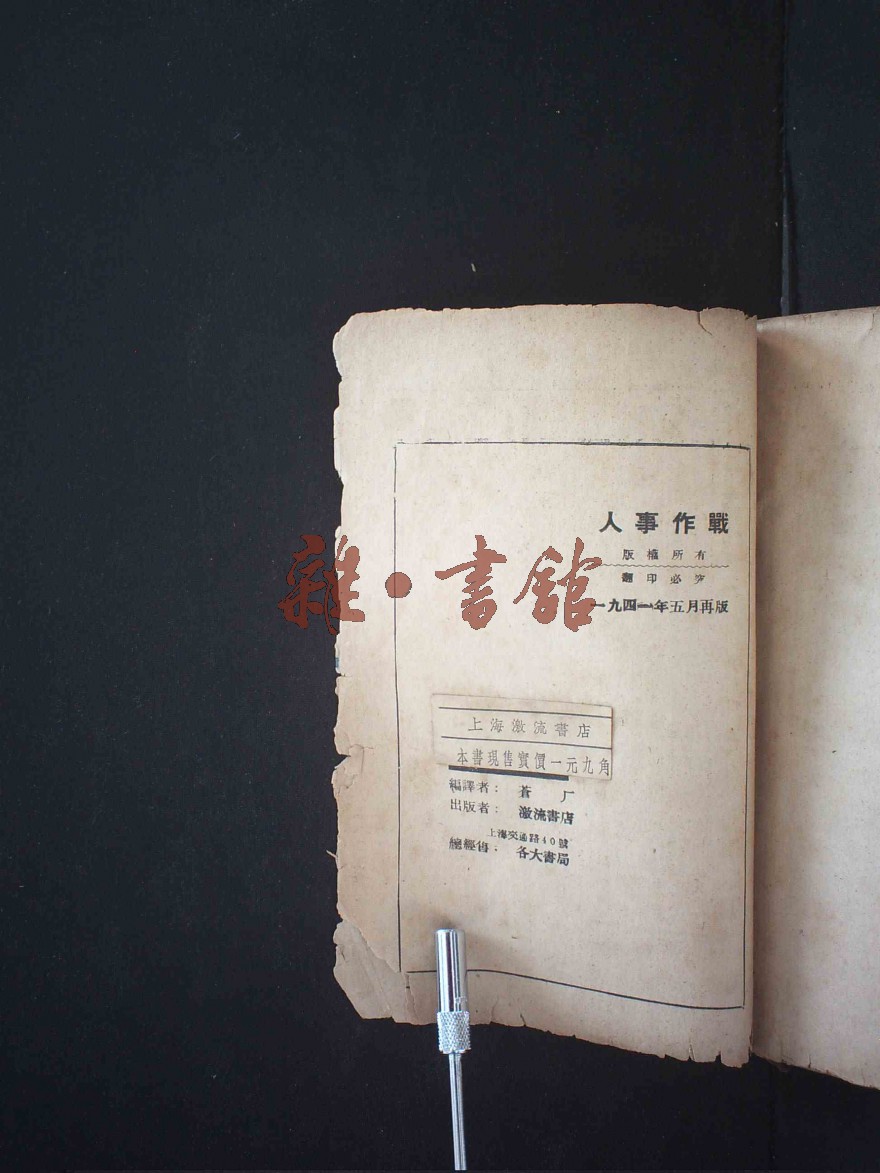 人事作戰
版權所有
翻印必究
一九四一年五月再版
雜·書館
上海激流書店
本書現售實價一元九角
編譯者：蒼厂
出版者：激流書店
上海交通路40號
總經售：各大書局